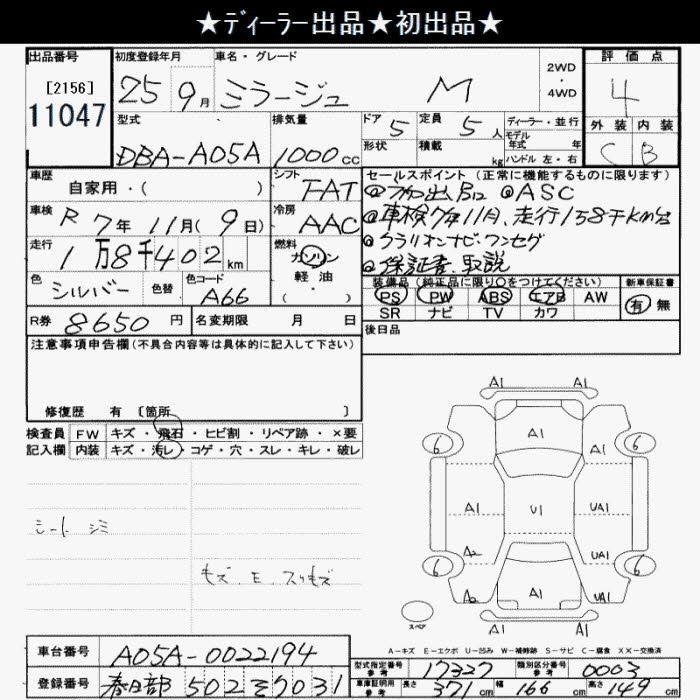 ★ディーラー出品★初出品★
出品番号 初度登録年月 車名・グレード 2WD・4WD 評価点
[2156]
11047
25 9月 ミラージュ M 4
型式 排気量 ドア 5 定員 5人 ディーラー・並行 外装 内装
モデル年式 年
DBA-A05A 1000cc 形状 積載 kg ハンドル 左・右 C B
車歴 自家用・( ) シフト FAT セールスポイント(正常に機能するものに限ります)
ASC
車検 R 7年 11月( 9日) 冷房 AAC 車検7年11月、走行158千km台
走行 1万8千402km 燃料 ガソリン クラリオンナビ・ワンセグ
軽・油
( )
保証書、取説
色 シルバー 色替 色コード A66 装備品(純正品に限り○をつけてください) 新車保証書
PS PW ABS エアB AW 有 無
SR ナビ TV カワ
R券 8650円 名変期限 月 日 後日品
注意事項申告欄(不具合内容等は具体的に記入して下さい)
修復歴 有 [箇所 ]
検査員 FW キズ・飛石・ヒビ割・リペア跡・×要
記入欄 内装 キズ・汚レ・コゲ・穴・スレ・キレ・破レ
シート シミ
キズ、E、スリキズ
A1 A1
A1
6 6
A1 U1 UA1
A2 UA1
6 6
A2 A1 UA1
A1 A1
スペア
A-キズ E-エクボ U-凹み W-補修跡 S-サビ C-腐食 XX-交換済
車台番号 A05A-0022194 型式指定番号 参考 17327 類別区分番号 参考 0003
登録番号 春日部 502 そ 7031 車庫証明用 参考 長さ 371cm 幅 166cm 高さ 149cm